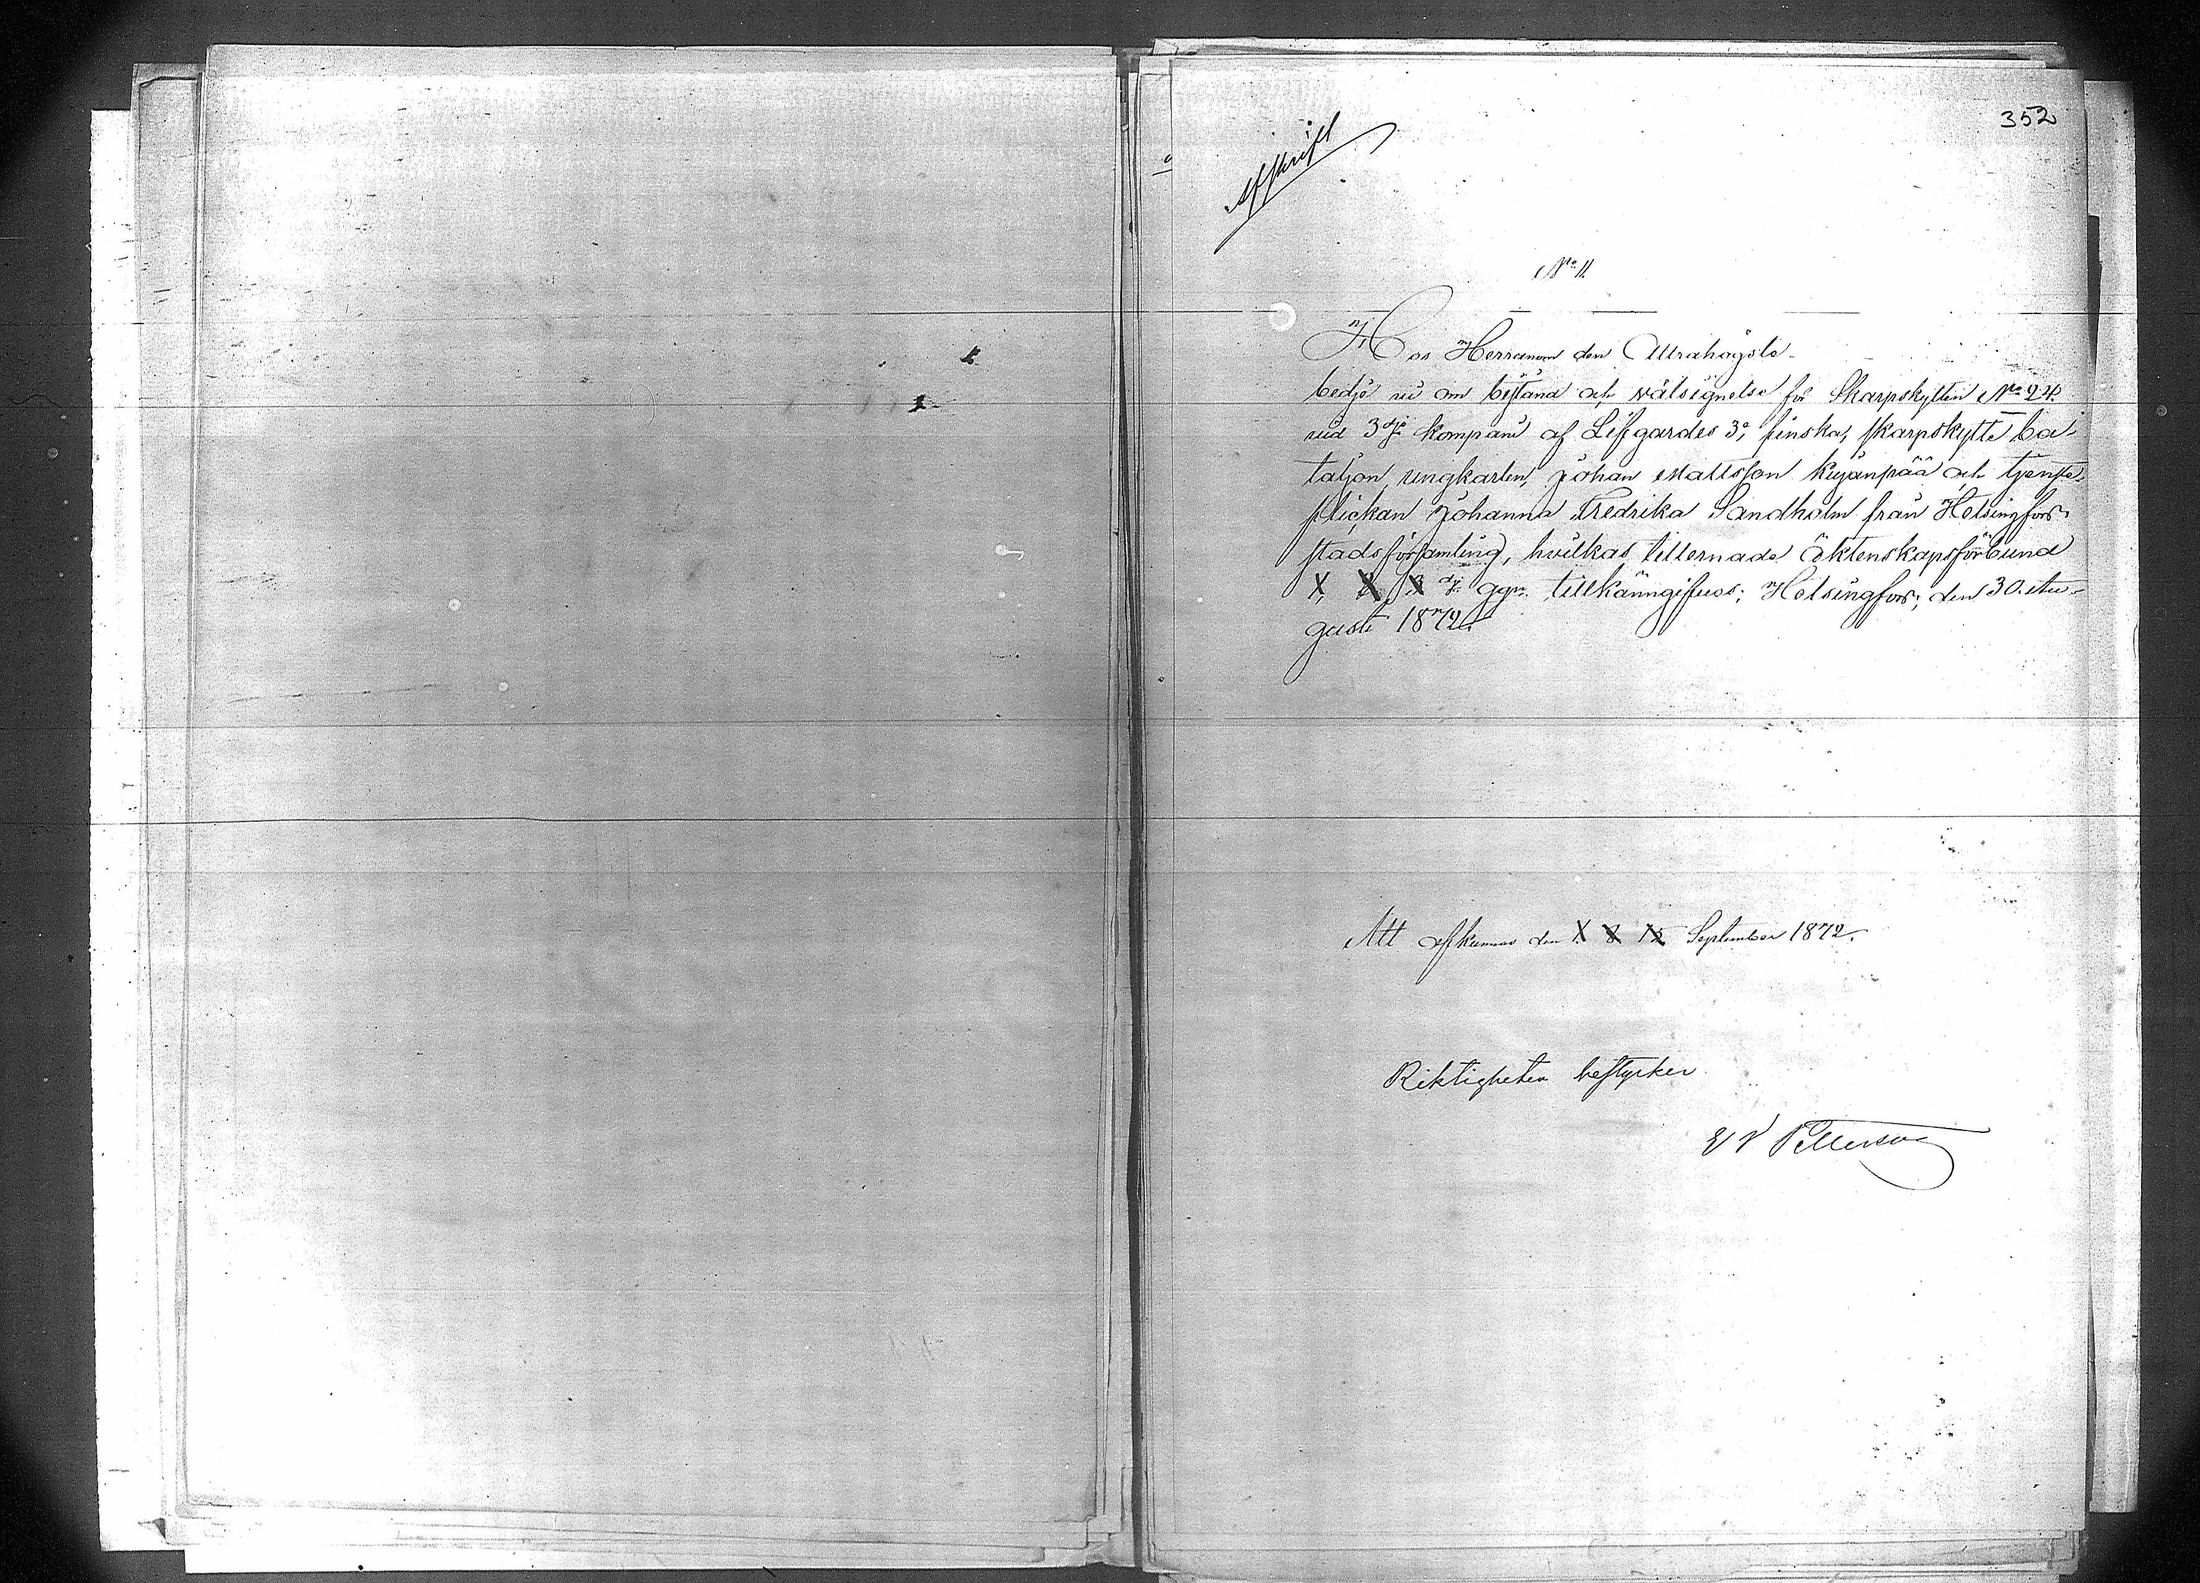 352
Afskrift
No 11.
Hos Herranom den Allrahögste
bedje vi om bistånd och välsignelse för Skarpskytten No 24.
vid 3dje kompani af Lifgardes 3e, finska, skarpskytte ba-
taljon, ungkarlen, Johan Mattsson Kujanpää och tjenste-
flickan Johanna Fredrika Sandholm från Helsingfors
stadsförsamling, hvilkas tillernade äktenskapsförbund
1, 2, 3dje ggn. tillkännagifves; Helsingfors, den 30. Au-
gusti 1872.
Att afkunnas den 1. 8 15 September 1872.
Riktigheten bestyrker
Pettersson